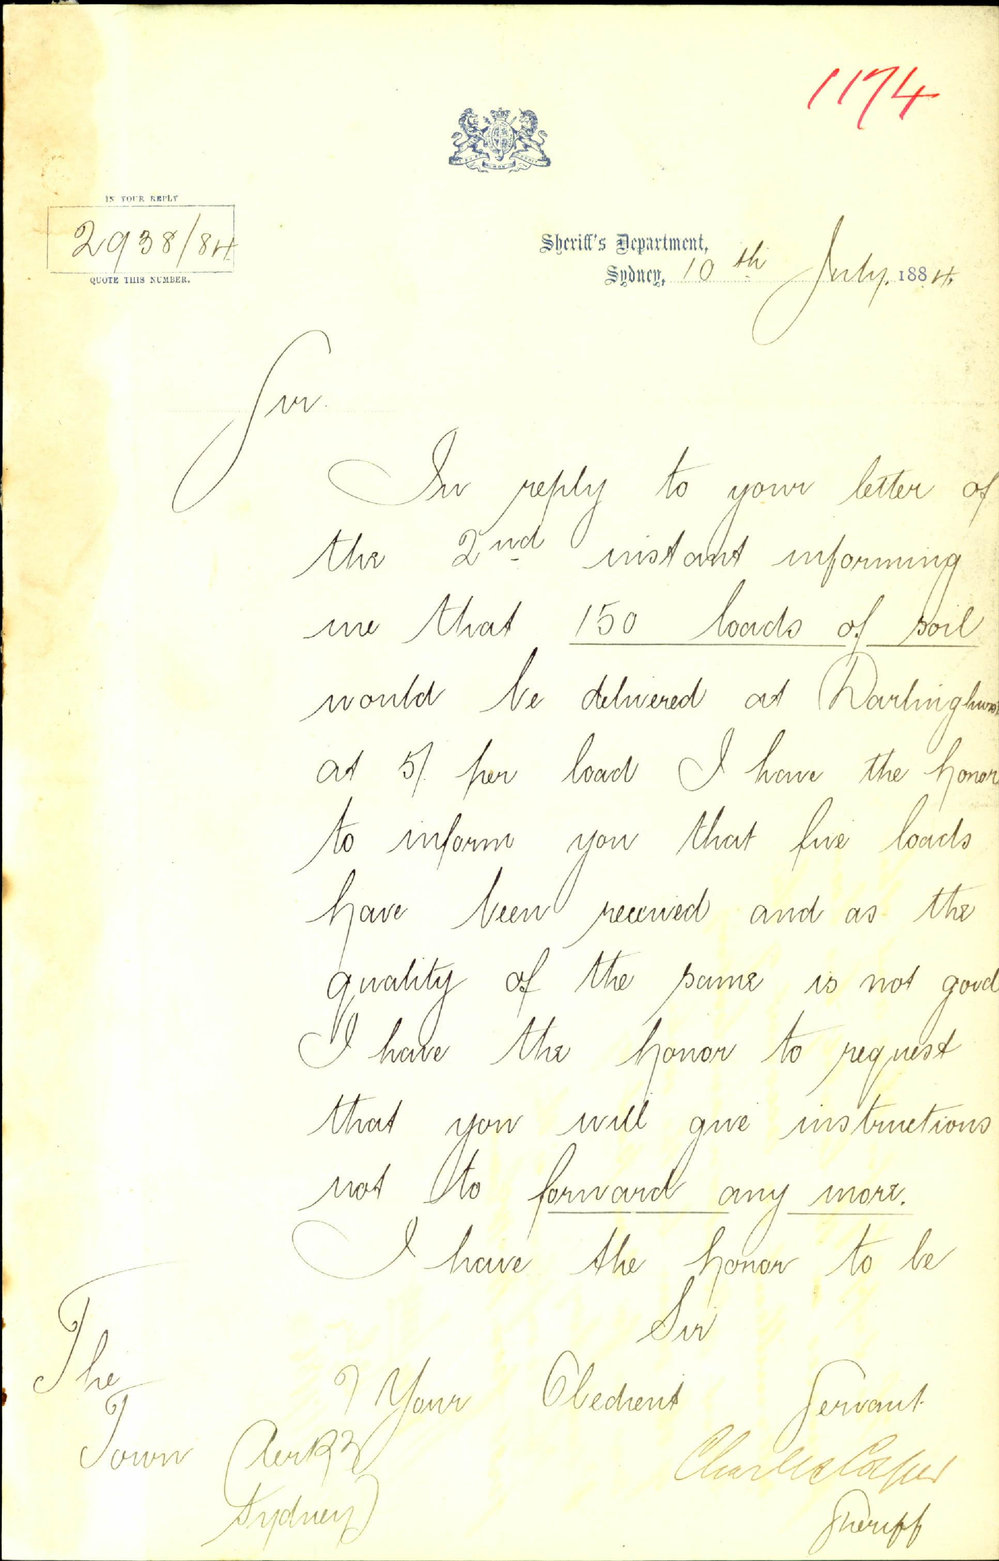 1174
IN YOUR REPLY
2938/84
QUOTE THIS NUMBER.
Sheriff's Department,
Sydney, 10th July. 1884.
Sir.
In reply to your letter of
the 2nd instant informing
me that 150 loads of soil
would be delivered at Darlinghurst
at 5/. per load I have the honor
to inform you that five loads
have been received and as the
quality of the same is not good
I have the honor to request
that you will give instructions
not to forward any more.
I have the honor to be
Sir
Your Obedient Servant
Charles Cowper
Sheriff
The
Town Clerk
Sydney